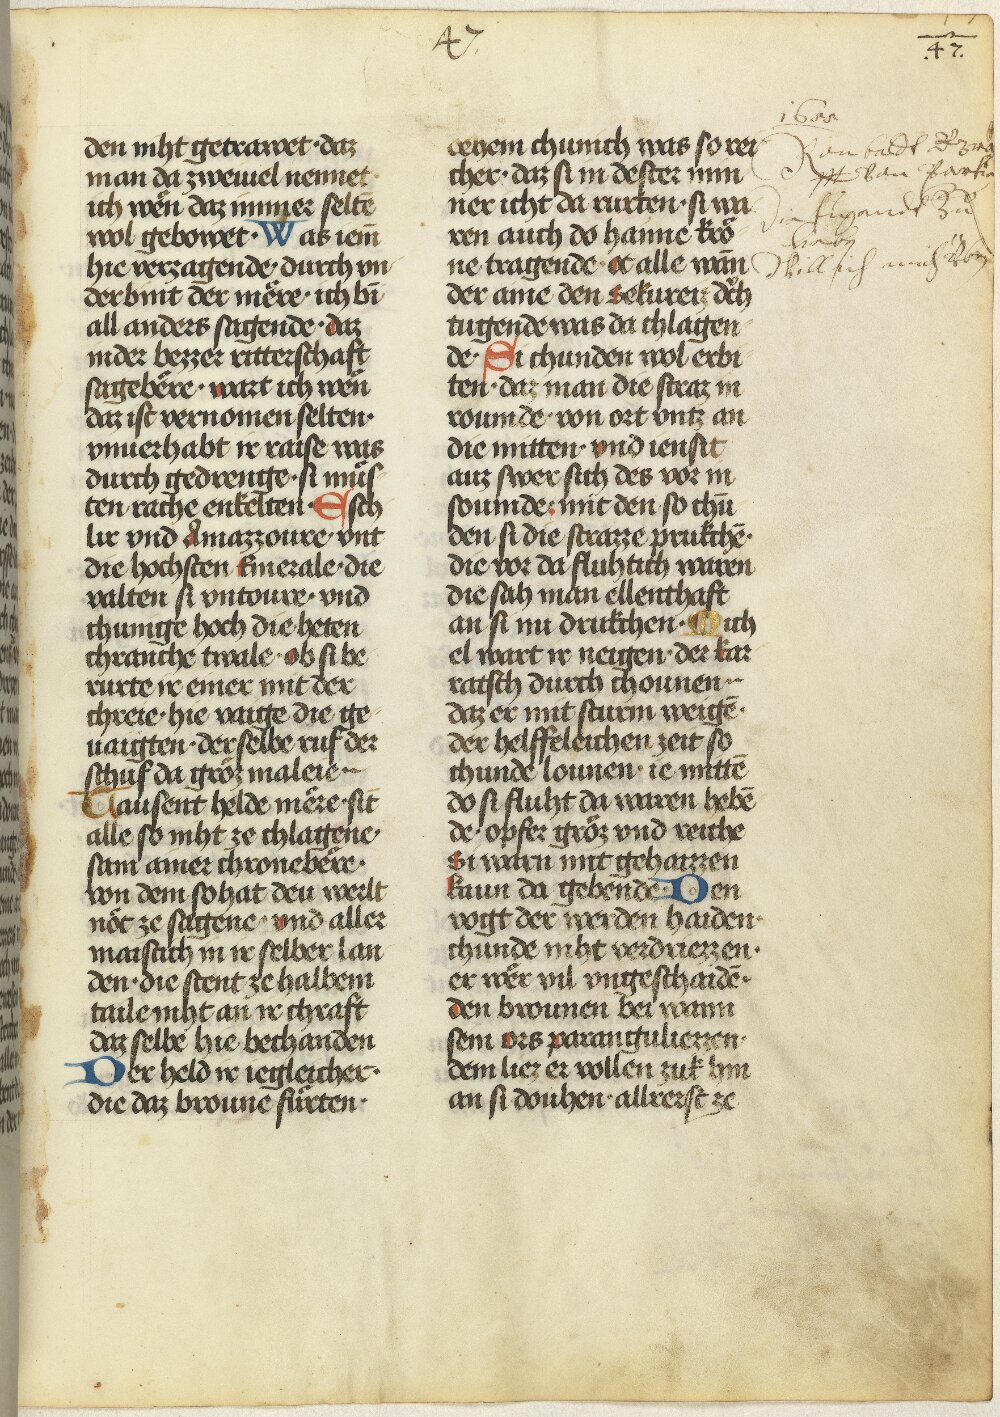 47.
47.
den niht getrawet · daz
man da zweiuel nennet ·
ich wën daz immer seltē
wol gebowet · Was iem̄
hie verzagende · durch vn
derbint der mëre · ich bī
all anders sagende · daz
nider bezzer ritterschaft
sagebëre · wart ich wën
daz ist vernomen selten ·
vnuerhabt ir raise was
durch gedrenge · si müs
ten rache enkelten · Esch
lir vnd Amazzoure · vnt
die hochsten Emerale · die
valten si vntoure · vnd
chunige hoch die heten
chranche twale · ob si be
rurte ir einer mit der
chreie · hie vaige die ge
uaigten · derselbe ruf der
schuf da gröz maleie
Tausent helde mëre · sit
alle so niht ze chlagene ·
sam ainer chronebëre ·
von dem so hat deu werlt
nöt ze sagene · vnd aller
maistich in ir selber lan
den · die stent ze halbem
taile niht an ir chraft
daz selbe hie bechanden
Der held ir iegleicher ·
die daz broune fürten ·
chunich was so rei
cher · daz si in dester min
ner icht da rurten · si wa
ren auch do hanne krö
ne tragende · oc alle wān
der aine den sekureiz dch
tugende was da chlagen
de · Si chunden wol erbi
ten · daz man die straz in
roumde · von ort vntz an
die mitten · vnd iensit
auz swer sich des vor in
soumde · mit den so chū
den si die strazze prukchē ·
die vor da fluhtich waren
die sah man ellenthaft
an si nu drukchen · Mich
el wart ir neigen · der kar
ratsch durch chounen
daz er mit sturm weigē ·
der helffeleichen zeit so
chunde lounen · ie mittē
do si fluht da waren hebē
de · opfer gröz vnd reiche
si warn mit geharzzen
kaun da gebende · Den
vogt der werden haiden ·
chunde niht verdriezzen ·
er wër vil vngeschaidē ·
den brounen bei wann
sein ors paranguliezzen ·
dem liez er vollen zuk hin
an si douhen · allrerst ze